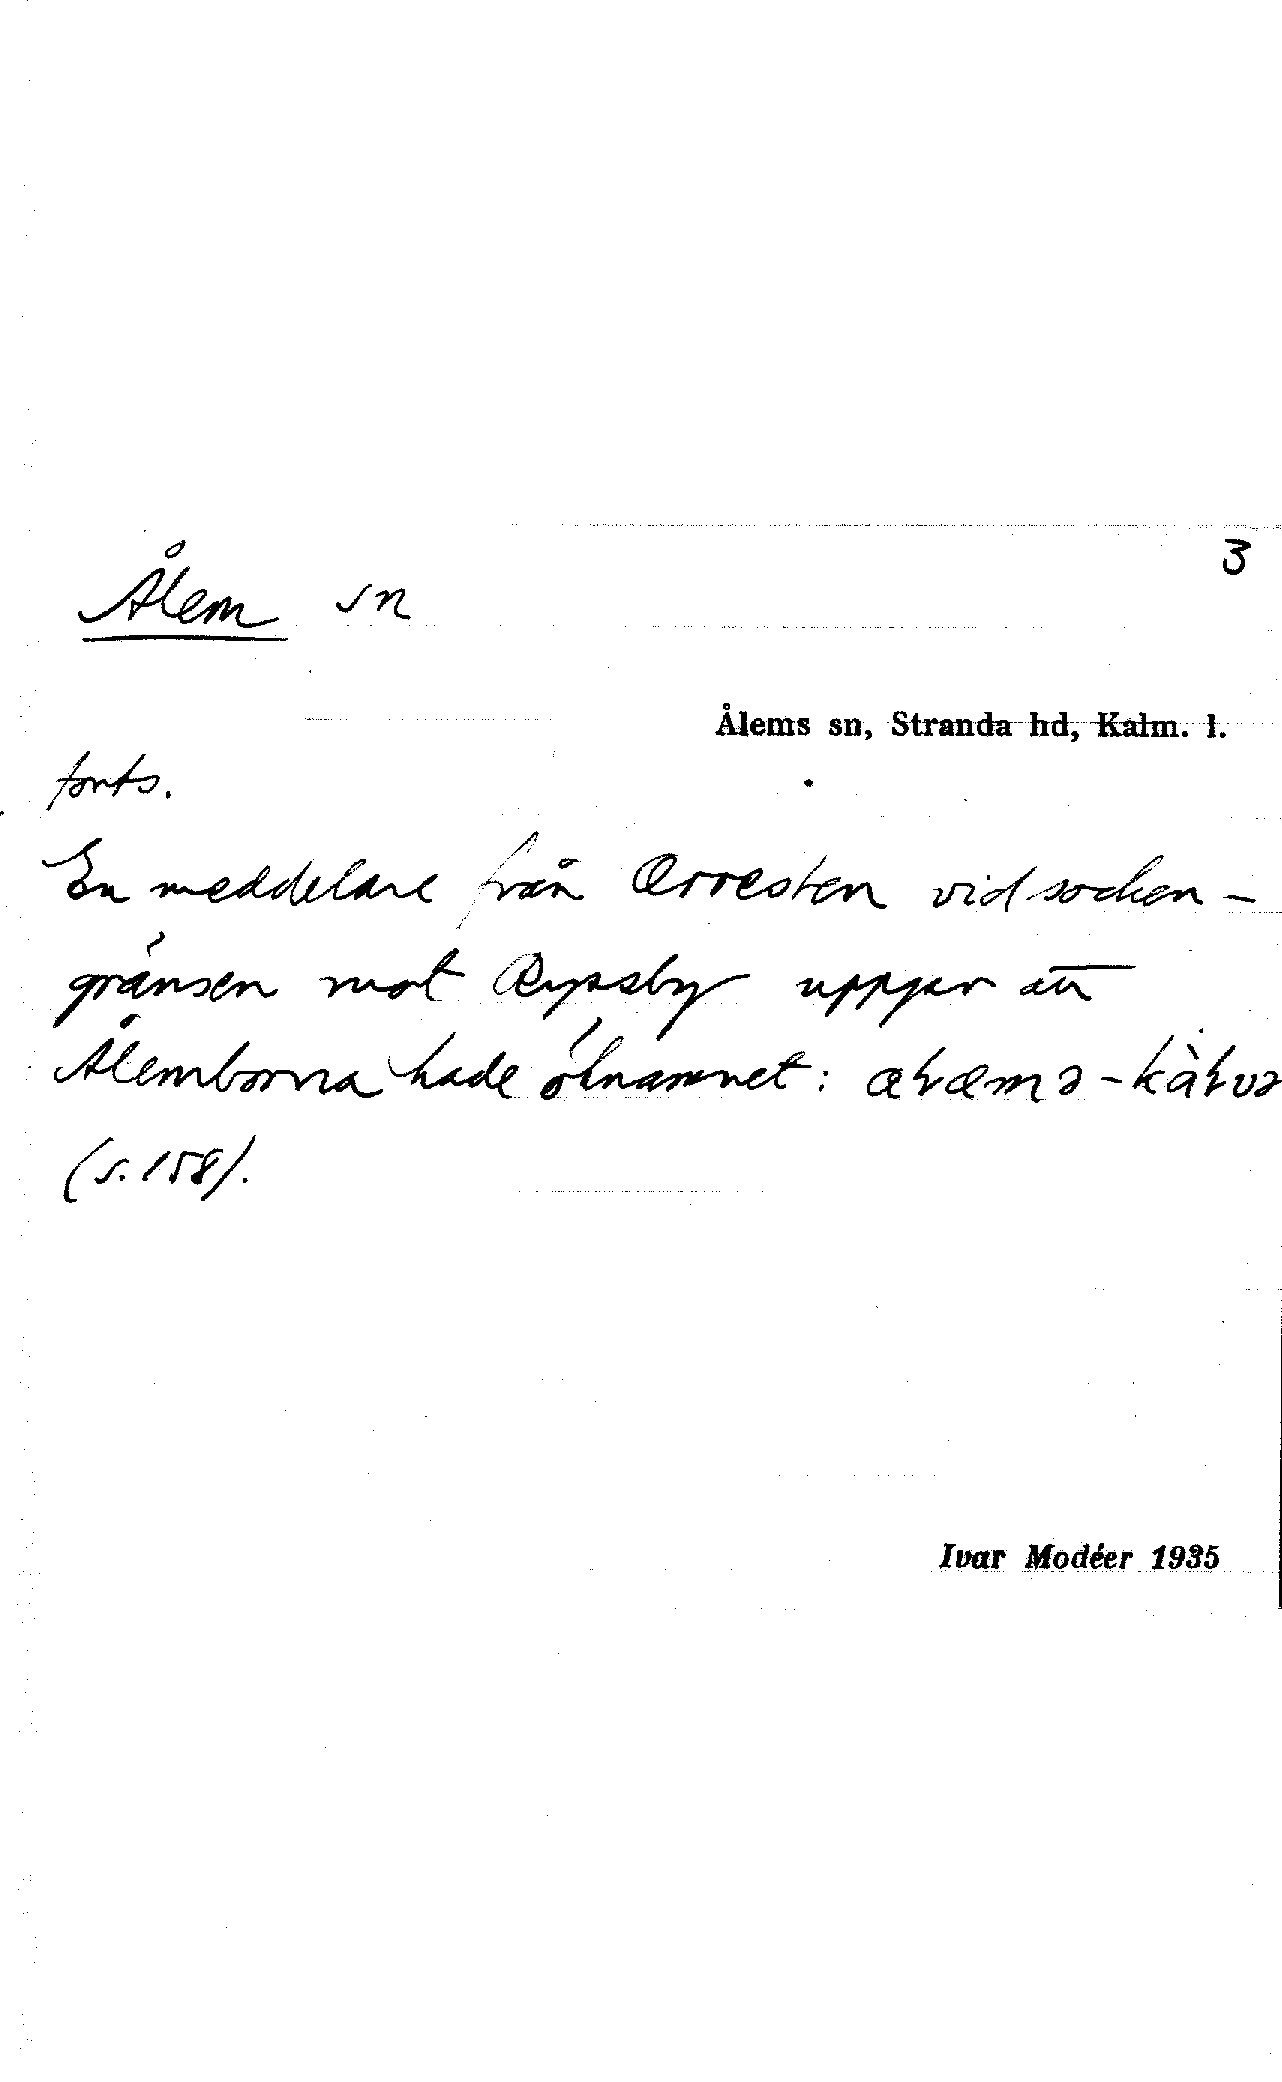 3
Ålem sn
Ålems sn, Stranda hd, Kalm. l.
forts.
En meddelare från Orresten vid socken-
gränsen mot Ryssby uppger att
Ålemborna hade öknamnet:
(s. 158).
Ivar Modéer 1935